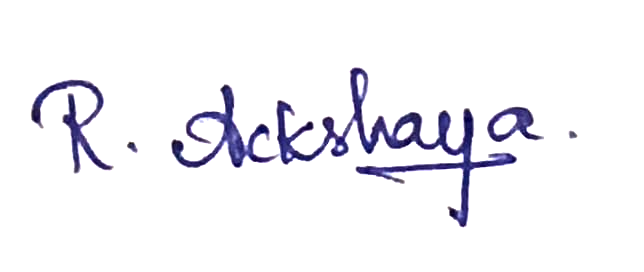 R. Ackshaya.